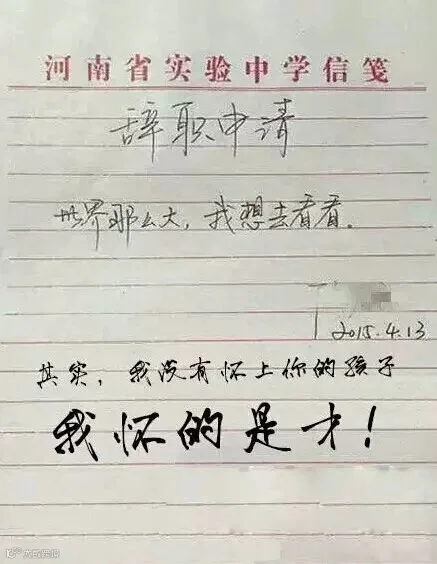 河南省实验中学信笺
辞职申请
世界那么大，我想去看看。
2015.4.13
其实，我没有怀上你的孩子
我怀的是才！